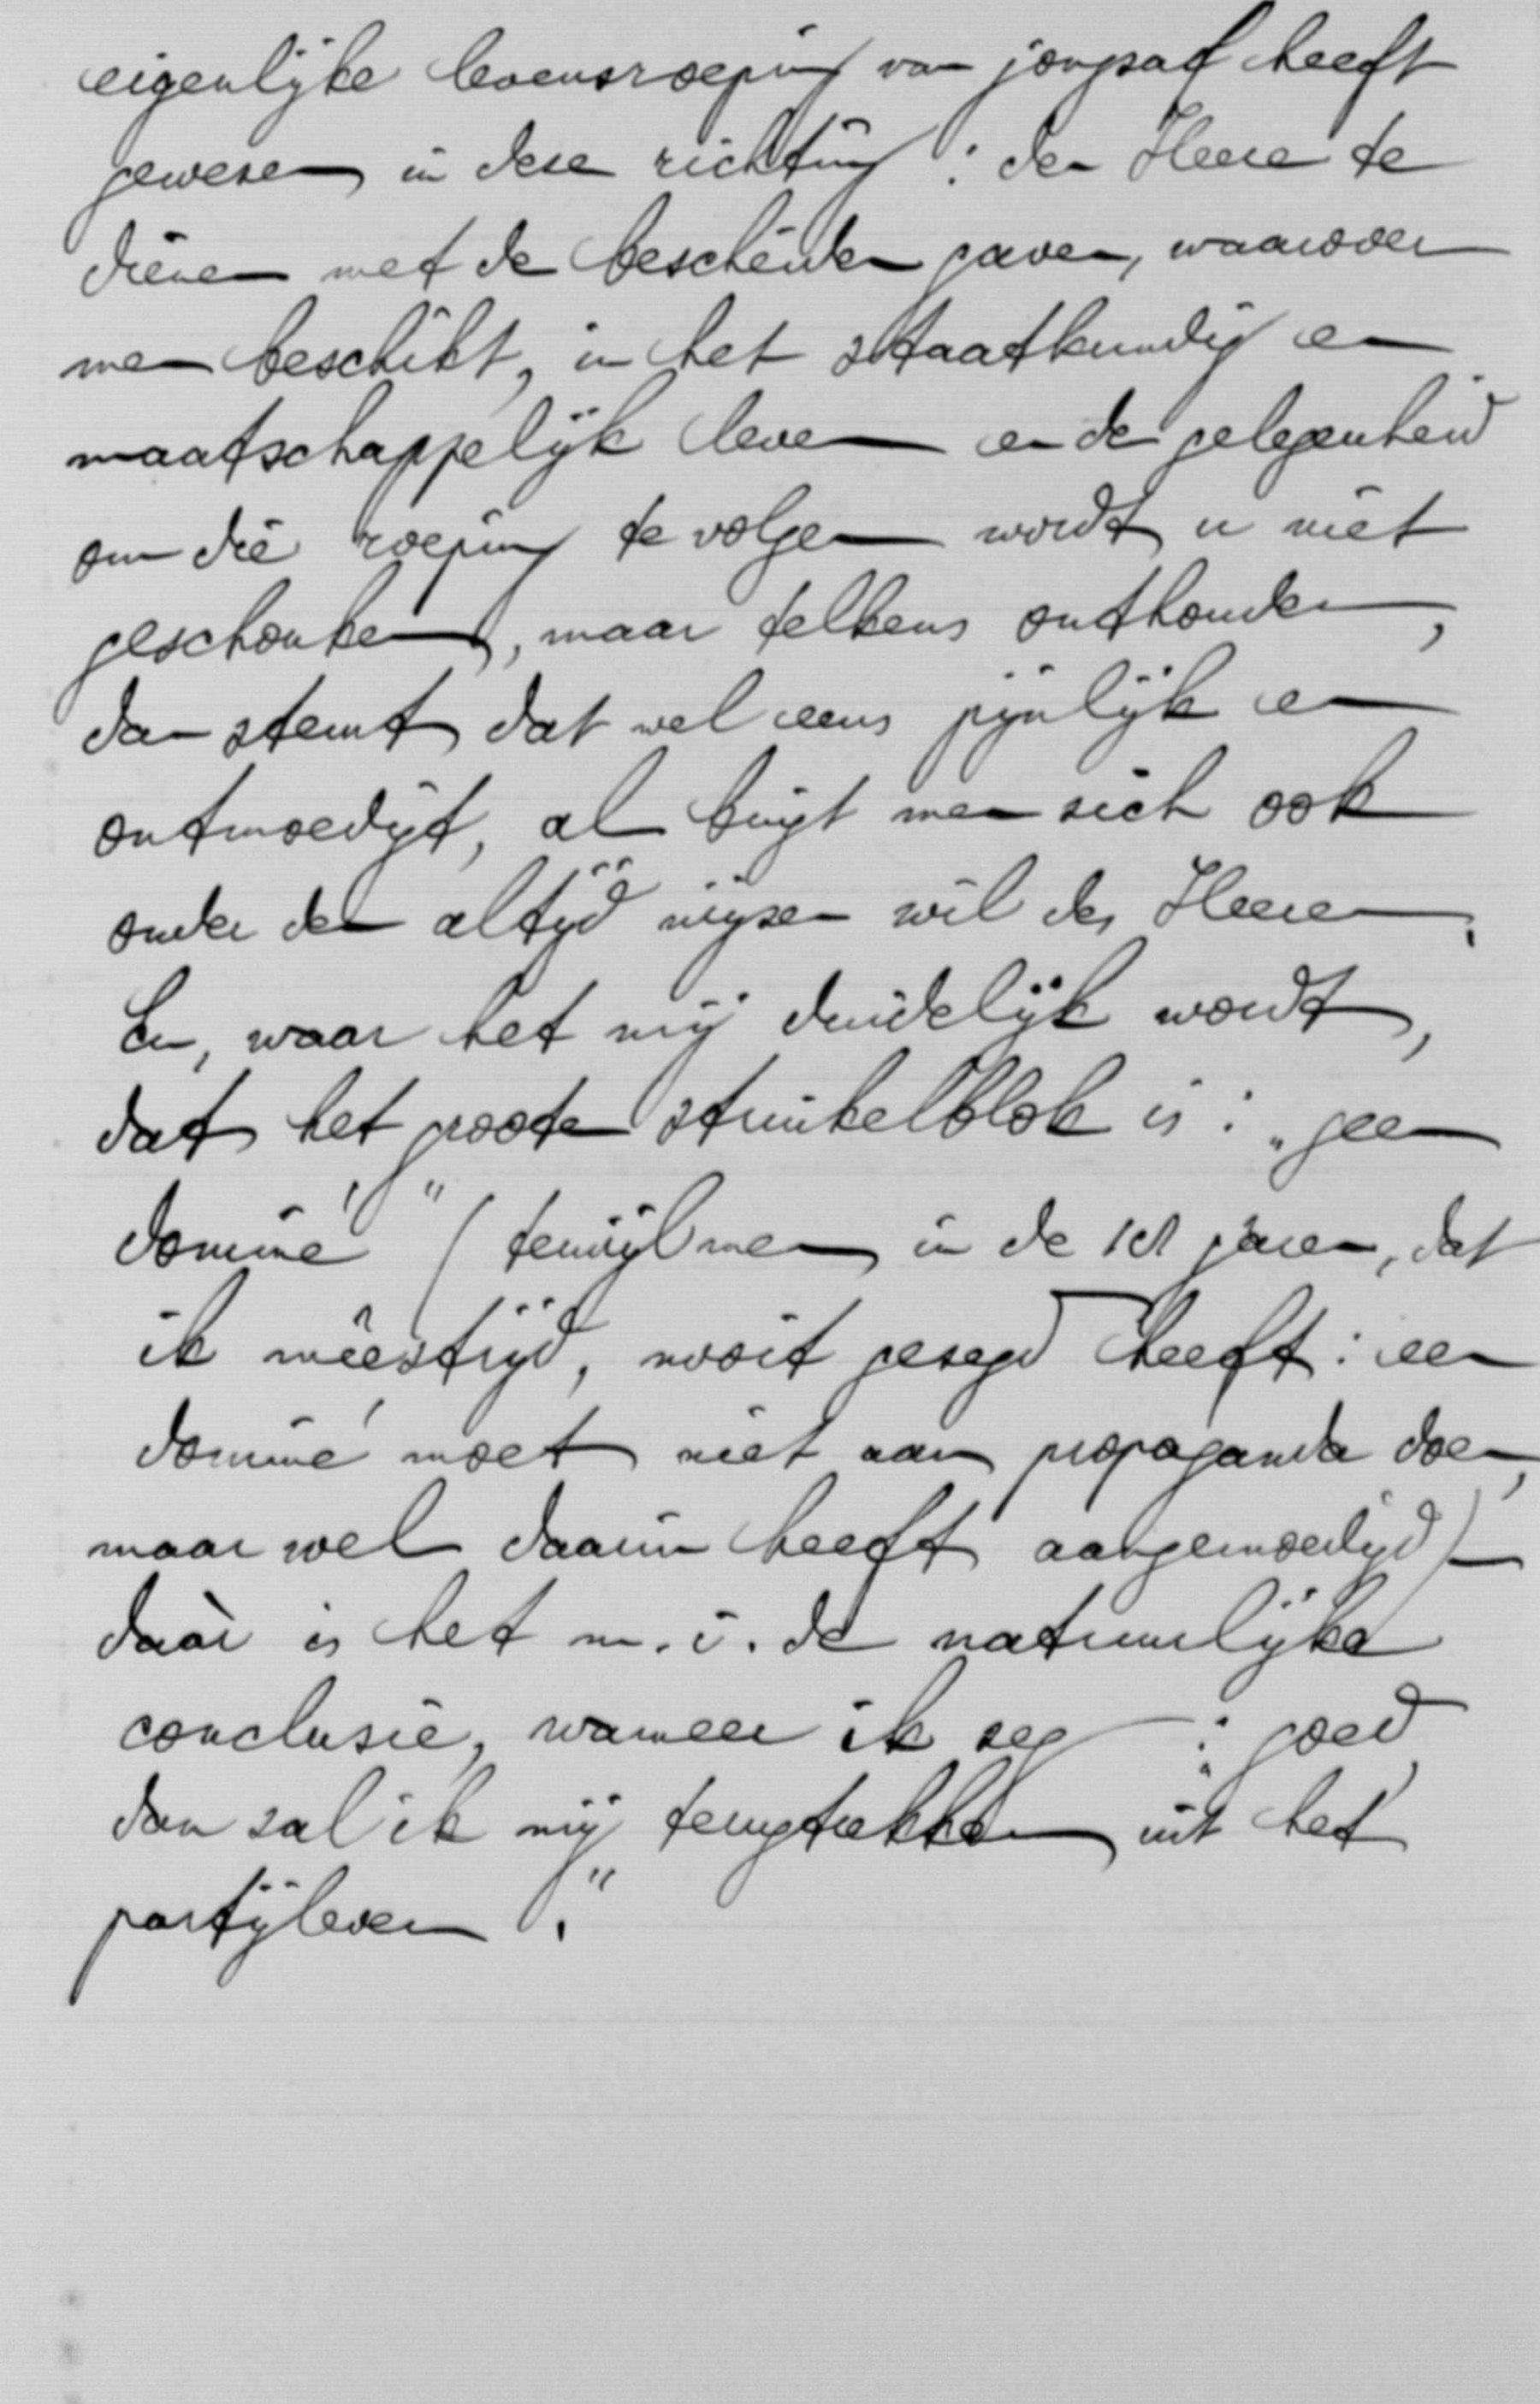 eigenlijke levensroeping van jongsaf heeft
gewezen in deze richting : den Heere te
dienen met de bescheiden gaven, waarover
men beschikt, in het staatkundig en
maatschappelijk leven en de gelegenheid
om die roeping te volgen wordt u niet
geschonken, maar telkens onthouden,
dan stemt dat wel eens pijnlijk en
ontmoedigt, al buigt men zich ook
onder den altijd wijzen wil des Heeren.
En, waar het mij duidelijk wordt,
dat het groote struikelblok is : „geen
dominé" (terwijl men in de jaren, dat
ik meêstrijd, nooit gezegd heeft : een
dominé moet niet aan propaganda doen,
maar wel daarin heeft aangemoedigd) –
daàr is het m. i. de natuurlijke
conclusie, wanneer ik zeg : „goed
dan zal ik mij terugtrekken uit het
partijleven."